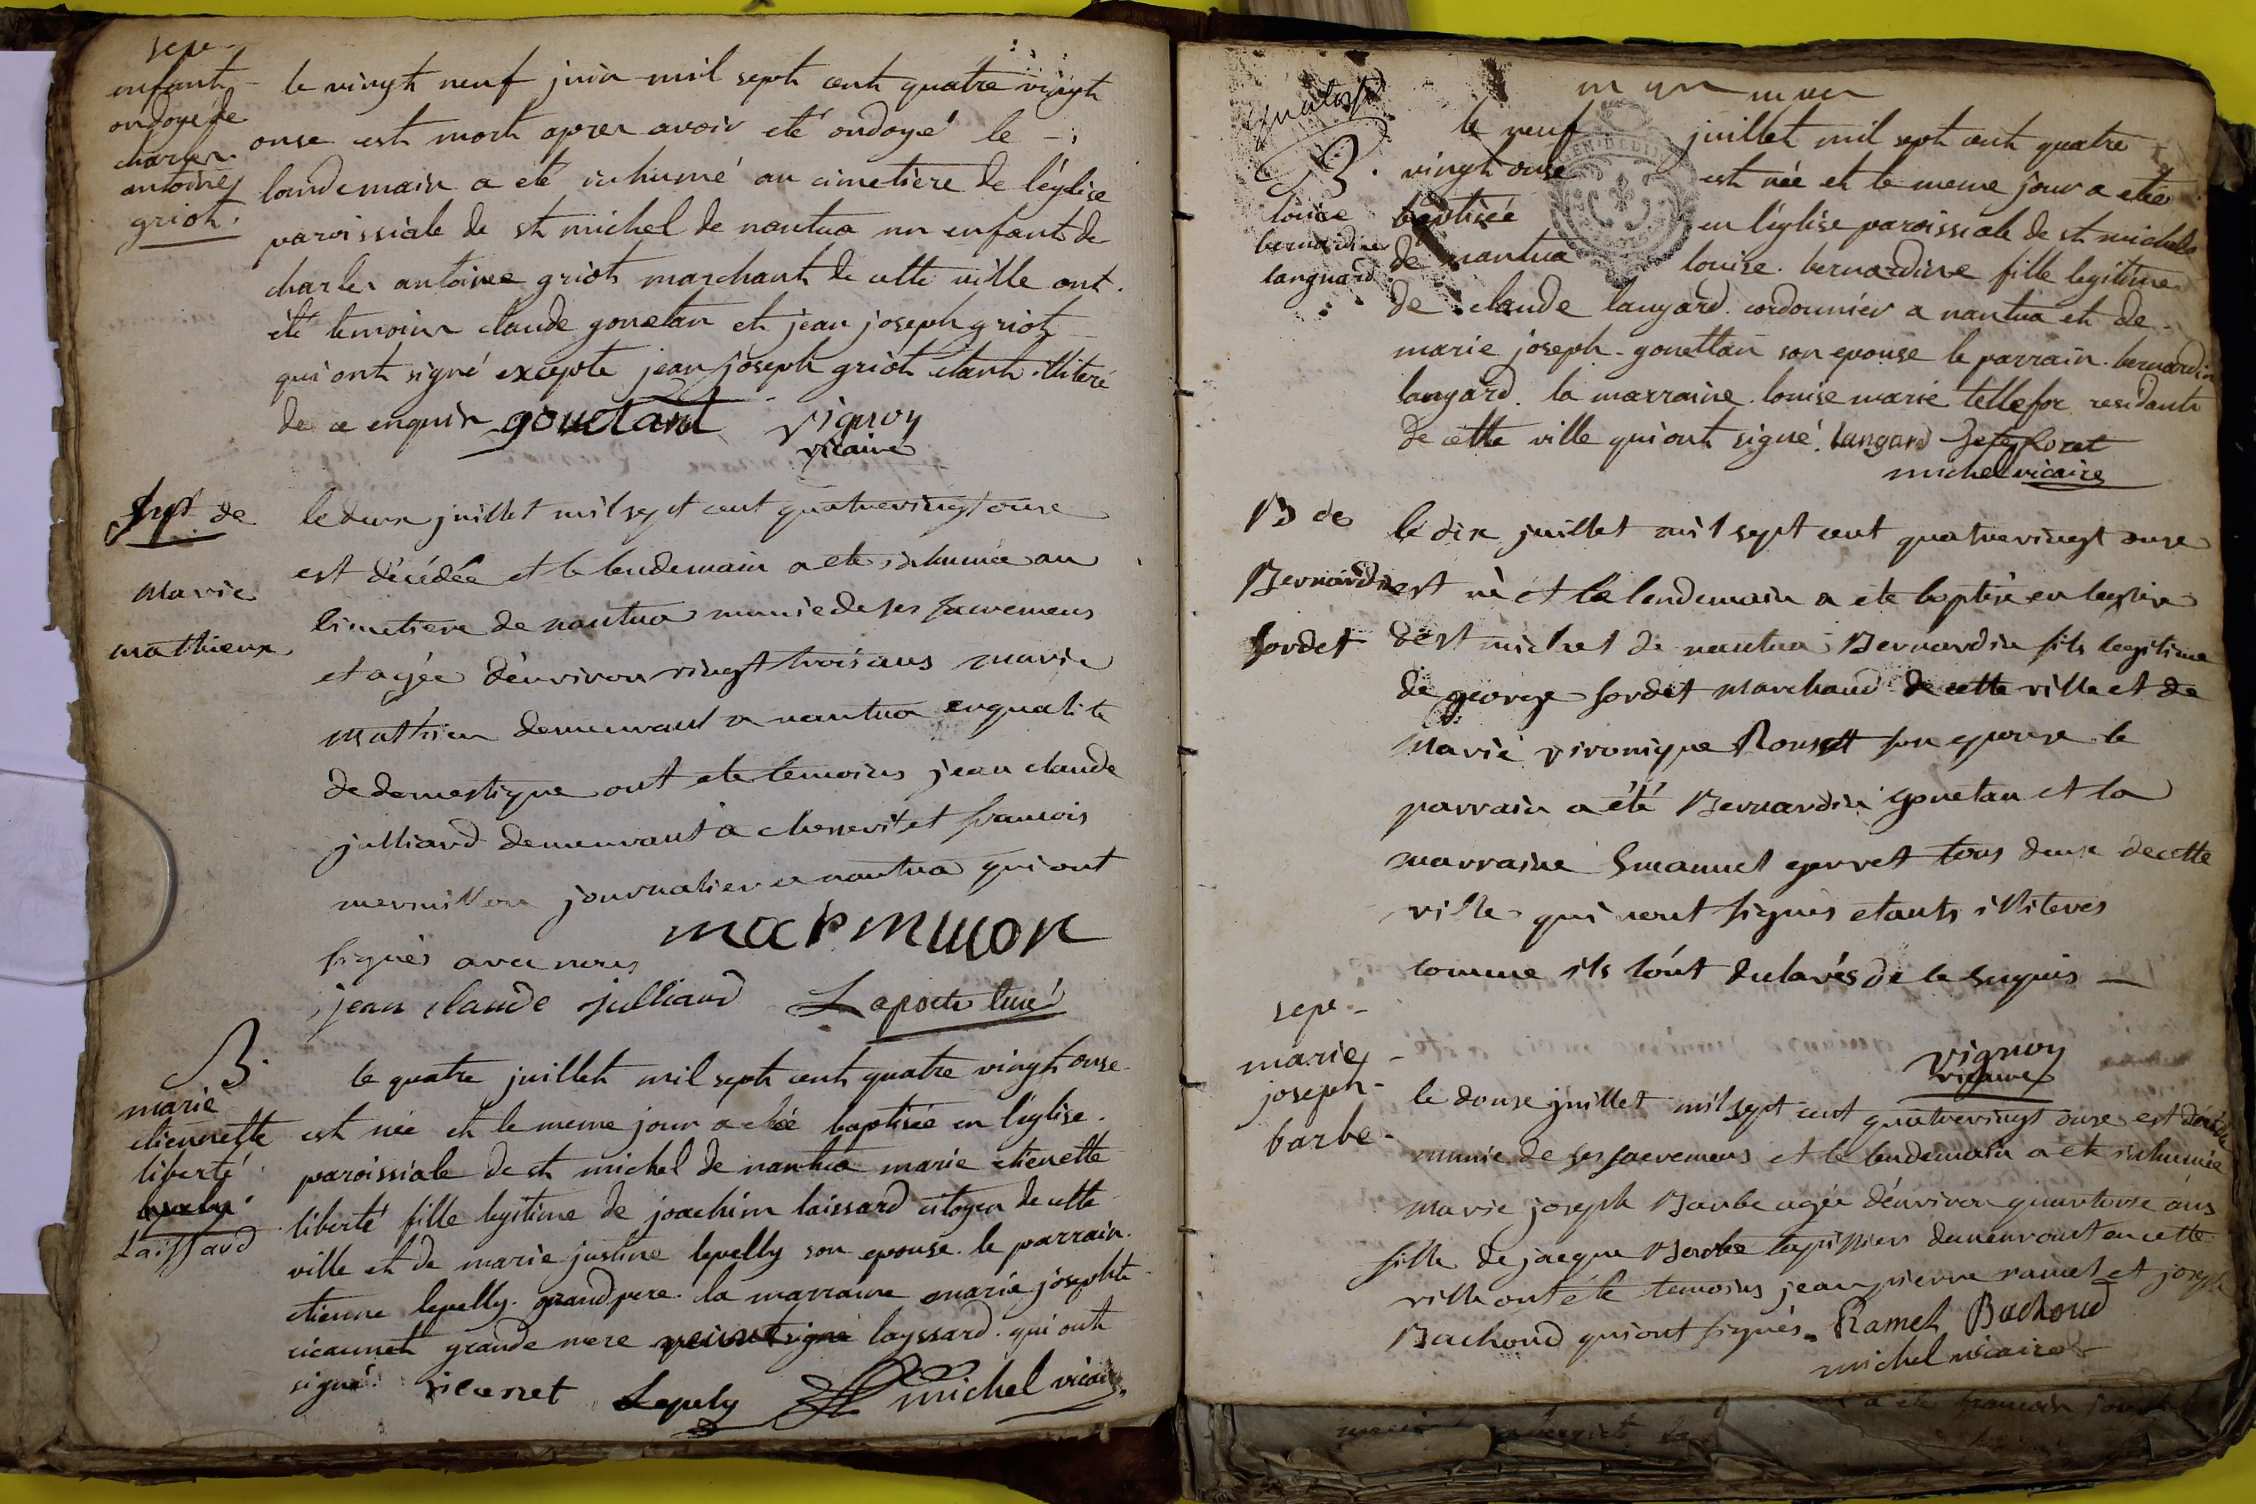 sepe
enfant
ondoyé de
charles
antoine
griot.
le vingt neuf juin mil sept cent quatre vingt
onse est mort apres avoir eté ondoyé le
landemain a eté inhumé au cimetiere de l'église
paroissiale de st michel de nantua un enfant de
charles antoine griot marchant de cette ville ont
été temoins claude gonetan et jean joseph griot
qui ont signé excepte jean joseph griot etant illiteré
de ce enquis gouetant vignoy
vicaire
sept de
Marie
mathieux
le deux juillet mil sept cent quatrevingt onze
est décédée et le lendemain a ete inhumée au
cimetiere de nantua munie de ses sacremens
et agée d'environ vingt trois ans marie
Mathieu demeurant a nantua en qualité
de domestique ont ete temoins jean claude
julliard demeurant a chenevit et francois
mermillon journalier a nantua qui ont
signés avec nous marmillon
jean claude julliard Lapoete curé
B.
marie
etiennette
liberté
Laissard
le quatre juillet mil sept cent quatre vingt onse
est née et le meme jour a etée baptisée en l'église
paroissiale de st michel de nantua marie etienette
liberté fille legitime de joachim laissard citoyen de cette
ville et de marie justine lepelly son epouse le parrain
etienne lepelly grand pere la marraine marie josephte
vicarnet grande mere layssard qui ont
signé. vicarnet Lepely michel vicaire
quatorse
B.
louise
bernardine
languard
le neuf juillet mil sept cent quatre
vingt onse est née et le meme jour a etée
baptisée en l'église paroissiale de st michel
de nantua louise bernardine fille legitime
de claude langard cordonnier a nantua et de
marie joseph gonettan son epouse le parrain bernardin
langard la marraine louise marie tellefor residante
de cette ville qui ont signé langard
michel vicaire
B de
Bernardin
sordet
le dix juillet mil sept cent quatrevingt onze
est né et le lendemain a ete baptisé en leglise
de st michel de nantua Bernardin fils legitime
de george sordet marchand de cette ville et de
Marie vironique Rousset son epouse le
parrain a été Bernardin gonetan et la
marraine Emanuel gerret tous deux de cette
ville qui nont signés etants illiterés
comme ils lont declarés de ce enquis
vignoy
vicaire
sepe
marie
joseph
barbe
le douse juillet mil sept cent quatrevingt onze est décédée
munie de ses sacremens et le lendemain a ete inhumée
Marie joseph Barbe agée d'environ quatorse ans
fille de jacque Barbe tapissier demeurant en cette
ville ont été temoins jean pierre ramel et joseph
Bachoud qui ont signés Ramel Bachoud
michel vicaire